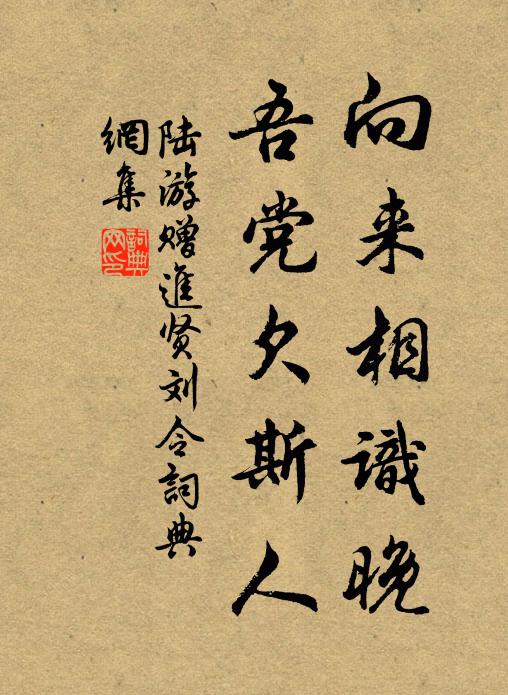 向来相識晚
吾党欠斯人
陆游赠進贤刘令詞典
網集
詞典
网印